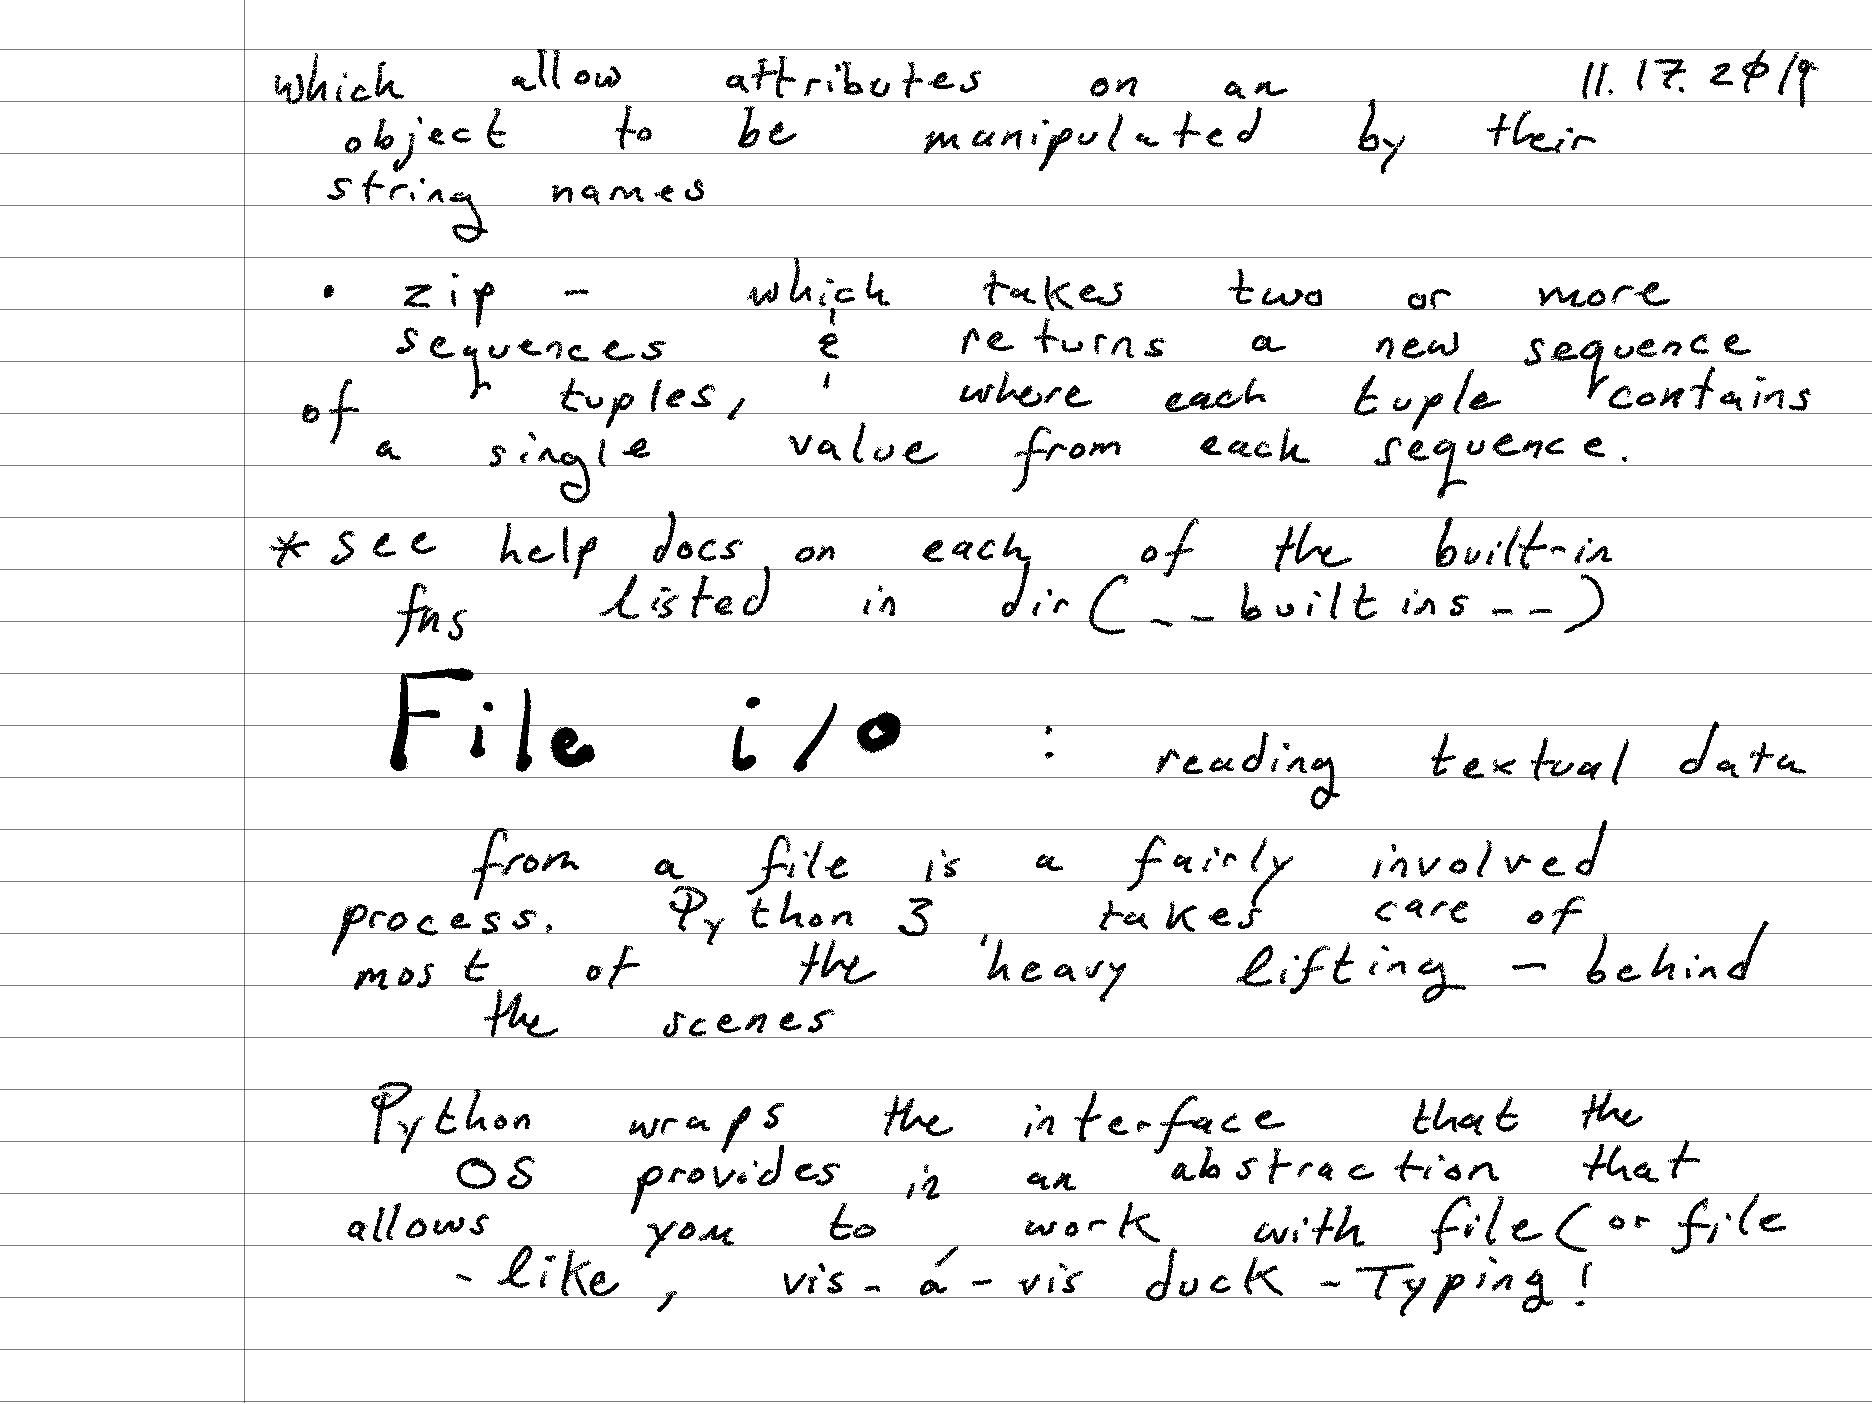 which allow attributes on an 11.17.2019
object to be manipulated by their
string names
• zip - which takes two or more
sequences & returns a new sequence
of tuples, where each tuple contains
a single value from each sequence.
* see help docs on each of the built-in
fns listed in dir(__builtins__)
File i/o : reading textual data
from a file is a fairly involved
process. Python 3 takes care of
most of the heavy lifting - behind
the scenes
Python wraps the interface that the
OS provides in an abstraction that
allows you to work with file (or file
-like, vis-á-vis duck-Typing!